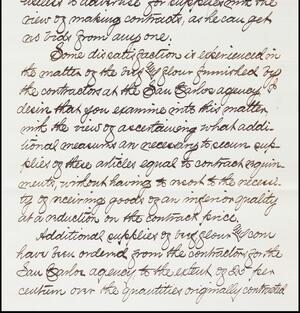 useless to advertise for supplies with the
view of making contracts, as he can get
no bids from any one.
Some dissatisfaction is experienced in
the matter of the beef & flour furnished by
the contractors at the San Carlos agency. I
desire that you examine into this matter
with the view of ascertaining what addi-
tional measures are necessary to secure sup-
plies of these articles equal to contract require-
ments, without having to resort to the necessi-
ty of receiving goods of an inferior quality
at a reduction on the contract price.
Additional supplies of beef, flour & corn
have been ordered from the contractors for the
San Carlos agency to the extent of 25 per
centum over the quantities originally contracted